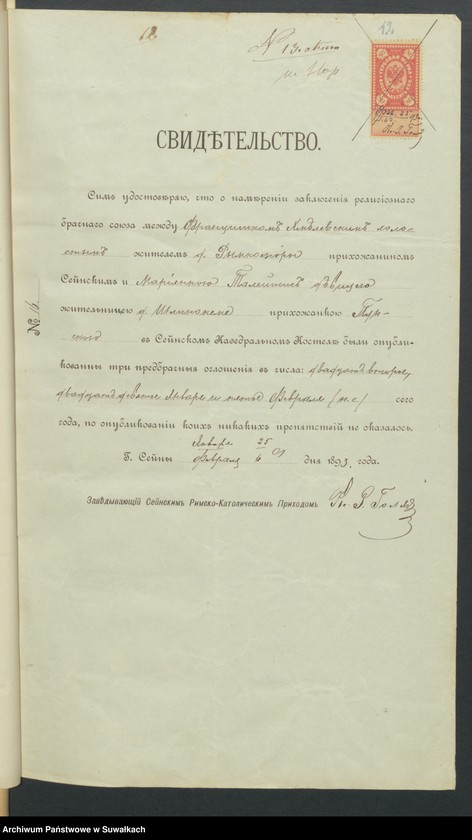 12.
12.
№ 13.
СВИДѢТЕЛЬСТВО.
Симъ удостовѣряю, что о намѣреніи заключенія религіознаго
брачнаго союза между Францишкомъ холо-
стымъ жителемъ д. прихожаниномъ
Сейнскимъ и Маріянною дѣвицею
жительницею д. прихожанкою Пун-
скою въ Сейнскомъ Каѳедральномъ Костелѣ были опубли-
кованны три предбрачныя оглашенія въ числа: двадцать второе,
двадцать девятое Января и пятое Февраля (н. с.) сего
года, по опубликованіи коихъ никакихъ препятствій не оказалось.
Г. Сейны Января 25 / Февраля 6 дня 1893 года.
Завѣдывающій Сейнскимъ Римско-Католическимъ Приходомъ
№ 16.
Archiwum Państwowe w Suwałkach